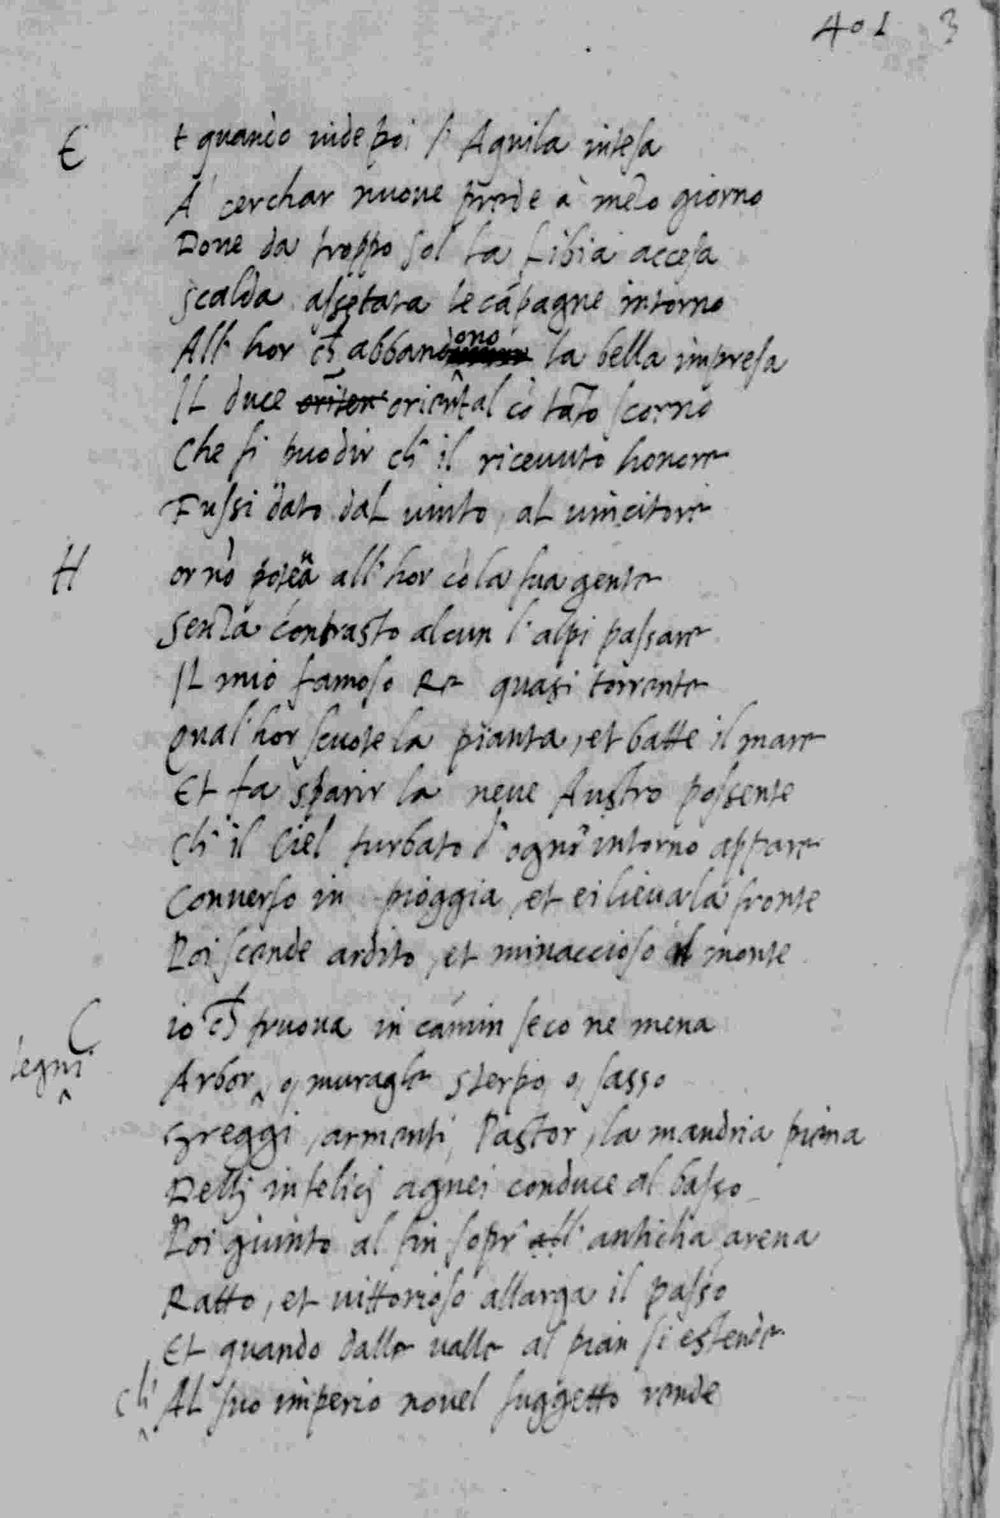 401 3
E t quando uide poi l' Aquila intesa
A' cerchar nuoue prede à mezo giorno
Doue da troppo sol la Libia accesa
Scalda assetata le cápagne intorno
All' hor ch' abbandono la bella impresa
IL duce oriten oriental cō tāto scorno
Che si puo dir ch' il riceuuto honore
Fussi dato dal uinto, al uincitore
H or nō potea all' hor cō la sua gente
Senza contrasto alcun l' alpi passare
IL mio famoso Re quasi torrente
Qual' hor scuote la pianta, et batte il mare
Et fa sparir la neue Austro possente
Ch' il Ciel turbato d' ogn' intorno appare
Conuerso in pioggia, et ei lieua la fronte
Poi scende ardito, et minaccioso il monte
C io ch' truoua in camin seco ne mena
legni
Arbor, o muraglie sterpo, o sasso
Greggi, armenti, Pastor, la mandria piena
Delli infelicj agnei conduce al basso
Poi giunto al fin sopr' all' anticha arena
Ratto, et uittorioso allarga il passo
Et quando dalle ualle al pian si estende
ch' AL suo imperio nouel suggetto rende